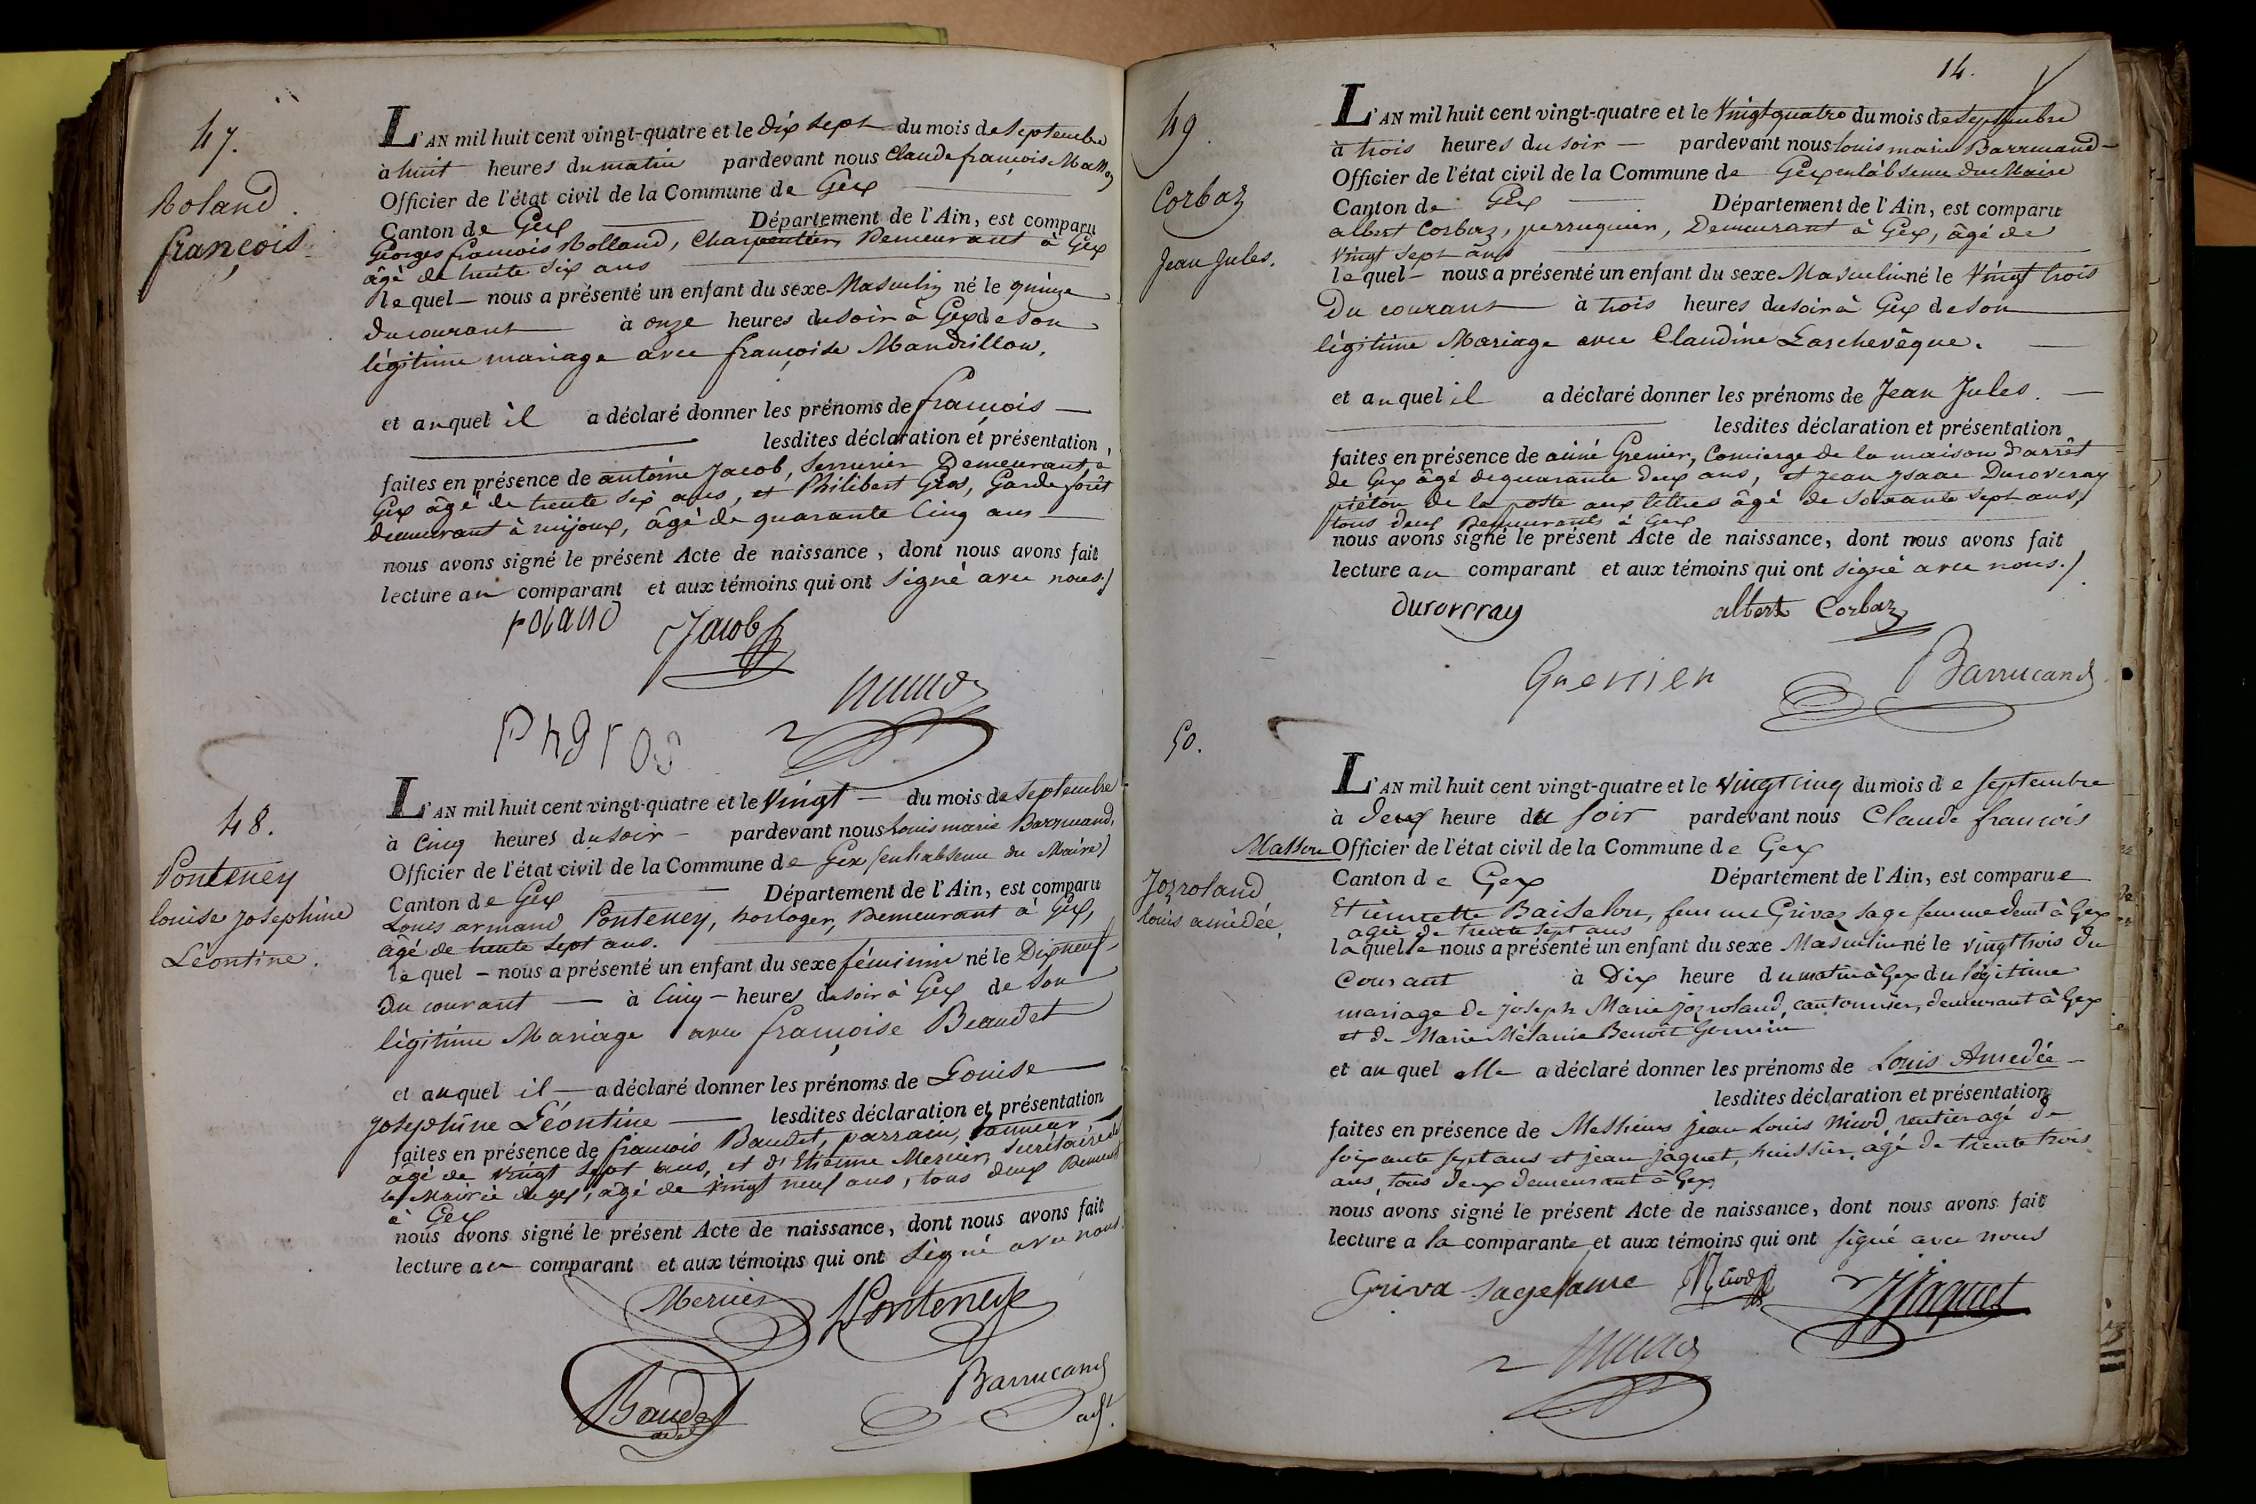 47.
Roland
françois.
L'AN mil huit cent vingt-quatre et le dix sept du mois de Septembre
à huit heures du matin pardevant nous Claude françois Masson
Officier de l'état civil de la Commune de Gex
Canton de Gex Département de l'Ain, est comparu
Georges françois Rolland, Charpentier, Demeurant à Gex
âgé de trente six ans
lequel nous a présenté un enfant du sexe Masculin né le quinze
du courant à onze heures du soir à Gex de son
légitime mariage avec françoise Mandrillon,
et auquel il a déclaré donner les prénoms de françois
lesdites déclaration et présentation,
faites en présence de antoine Jacob, Serrurier Demeurant, à
Gex âgé de trente six ans, et Philibert Gros, Garde forêt
demeurant à mijoux, âgé de quarante Cinq ans
nous avons signé le présent Acte de naissance, dont nous avons fait
lecture au comparant et aux témoins qui ont signé avec nous./
roland
Jacob
Ph gros
48.
Ponteney
louise josephine
Léontine.
L'AN mil huit cent vingt-quatre et le Vingt du mois de Septembre
à Cinq heures du soir pardevant nous Louis marie Barrucand,
Officier de l'état civil de la Commune de Gex (en l'absence du Maire)
Canton de Gex Département de l'Ain, est comparu
Louis armand Ponteney, horloger, Demeurant à Gex,
âgé de trente sept ans.
lequel nous a présenté un enfant du sexe féminin né le Dix neuf
du courant à Cinq heures du soir à Gex de son
légitime Mariage avec françoise Beaudet
et auquel il a déclaré donner les prénoms de Louise
Josephine Léontine lesdites déclaration et présentation
faites en présence de françois Baudet, parrain, tanneur
âgé de vingt sept ans, et d'Etienne Mercier, Secrétaire de
la Mairie de gex, âgé de vingt neuf ans, tous deux Demeurt
à Gex
nous avons signé le présent Acte de naissance, dont nous avons fait
lecture au comparant et aux témoins qui ont signé avec nous.
Mercier
Ponteney
Baudet
Barrucand
adjt.
14.
49.
Corbaz
Jean Jules.
L'AN mil huit cent vingt-quatre et le Vingt quatre du mois de Septembre
à trois heures du soir pardevant nous Louis marie Barrucand
Officier de l'état civil de la Commune de Gex en l'absence du Maire
Canton de Gex Département de l'Ain, est comparu
albert Corbaz, perruquier, Demeurant à Gex, âgé de
vingt sept ans
lequel nous a présenté un enfant du sexe Masculin né le Vingt trois
Du courant à trois heures du soir à Gex de son
légitime Mariage avec Claudine Larchevêque.
et auquel il a déclaré donner les prénoms de Jean Jules.
lesdites déclaration et présentation
faites en présence de aimé Grenier, Concierge de la maison d'arrêt
de Gex âgé de quarante deux ans, et Jean ysaac Duroveray
piéton de la poste aux lettres âgé de Soixante sept ans,
tous deux Demeurants à Gex
nous avons signé le présent Acte de naissance, dont nous avons fait
lecture au comparant et aux témoins qui ont signé avec nous./
duroveray
albert Corbaz
Grenier
Barrucand
50.
Jozroland
louis amédée.
L'AN mil huit cent vingt-quatre et le vingt cinq du mois de Septembre
à deux heure du soir pardevant nous Claude francois
Masson Officier de l'état civil de la Commune de Gex
Canton de Gex Département de l'Ain, est comparue
Etiennette Baiselon, femme Grivaz sage femme demt à Gex
agée de trente sept ans
laquelle nous a présenté un enfant du sexe Masculin né le vingt trois du
courant à Dix heure du matin à Gex du légitime
mariage de joseph Marie jozroland, cantonnier, demeurant à Gex
et de Marie Mélanie Benoit Gonnin
et auquel elle a déclaré donner les prénoms de Louis Amedée
lesdites déclaration et présentation
faites en présence de Messieurs jean Louis Nicod, rentier agé de
soixante sept ans et jean jaquet, huissier, agé de trente trois
ans, tous deux demeurant à Gex
nous avons signé le présent Acte de naissance, dont nous avons fait
lecture a la comparante et aux témoins qui ont signé avec nous
Griva sagefame
Nicod
JJaquet